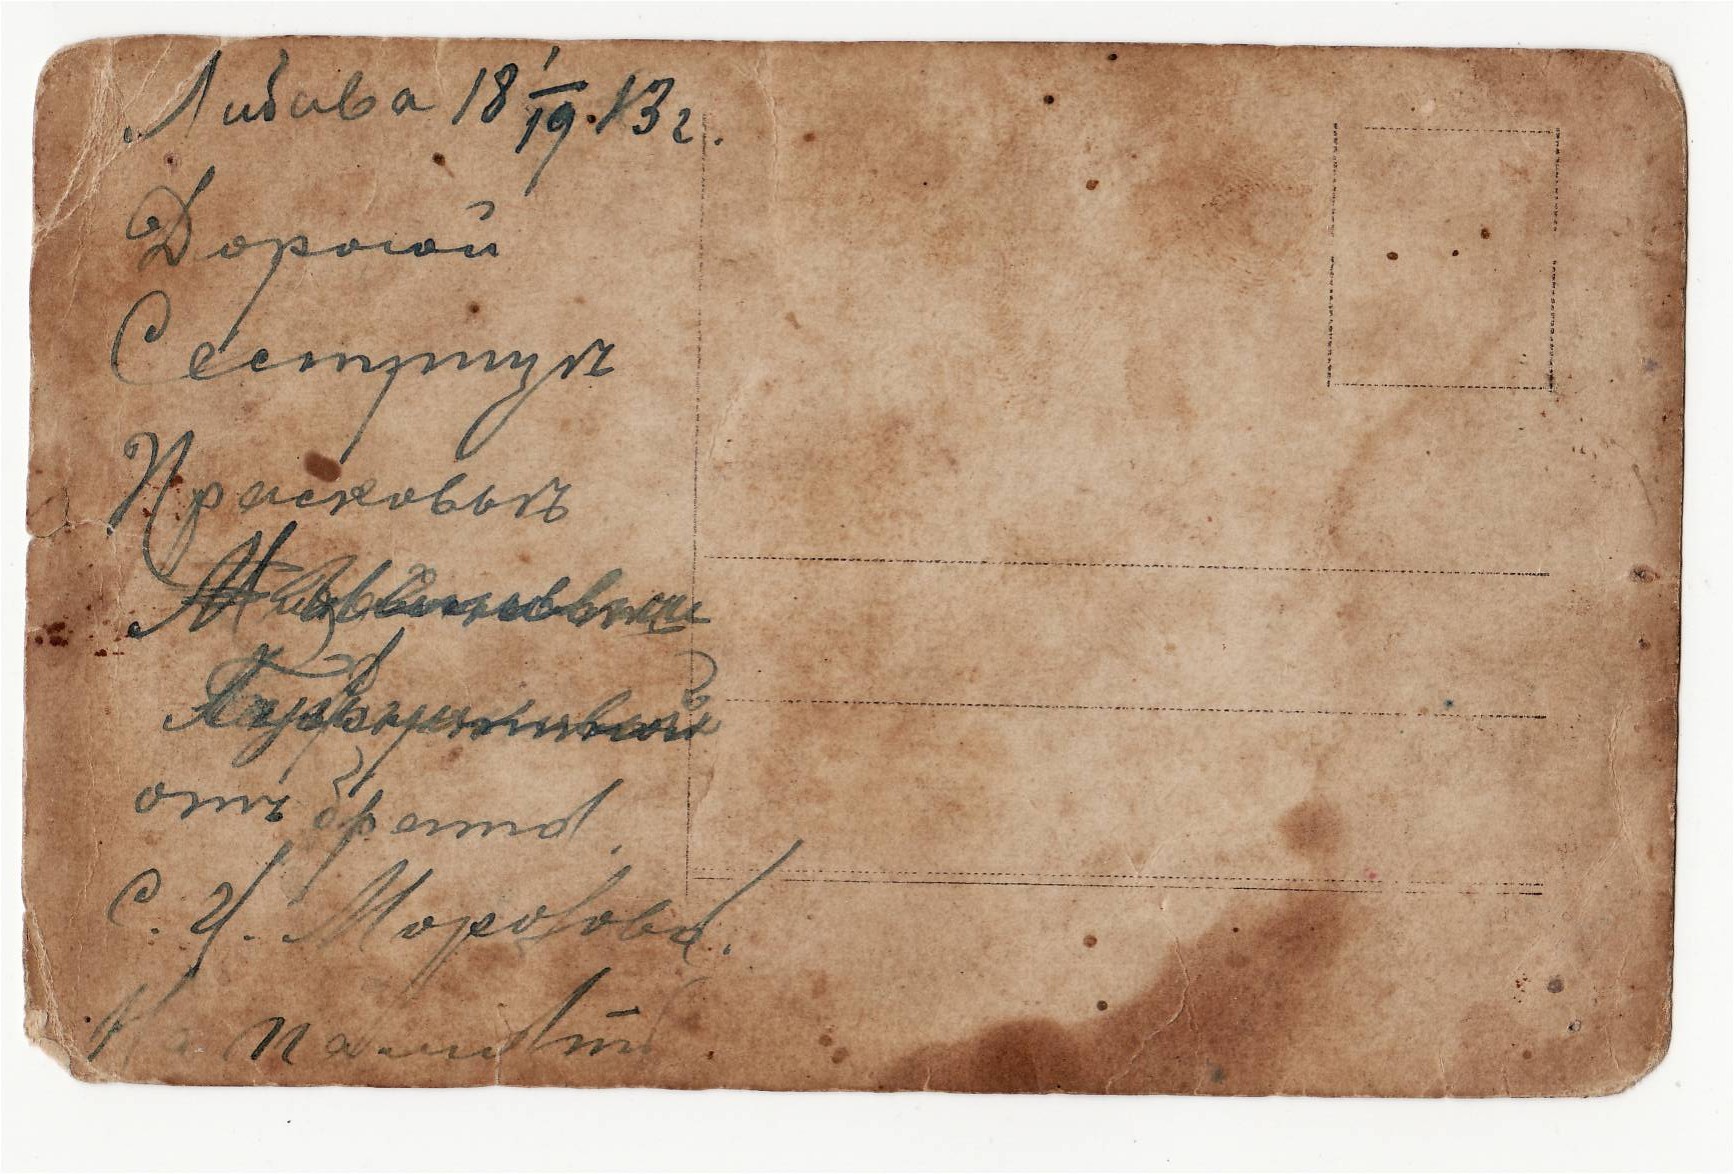 Либава 18 1/19. 13 г.
Дорогой
Сестрицѣ
Прасковьѣ
отъ брата.
С. И. Морозова.
На память